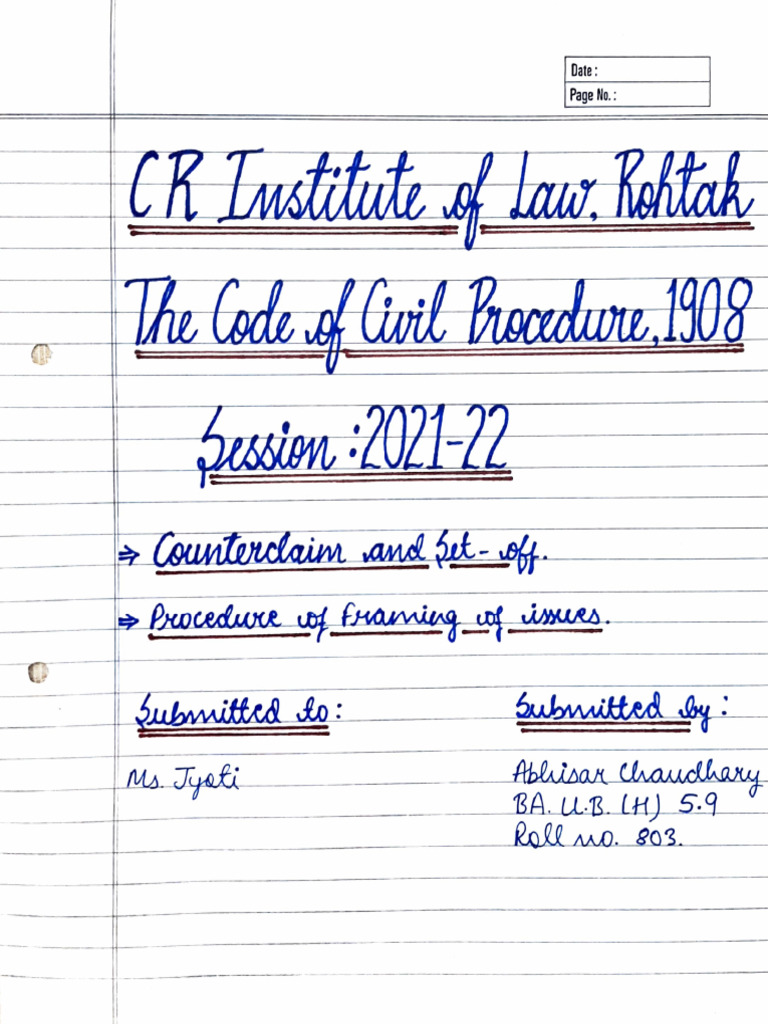 Date :
Page No. :
CR Institute of Law, Rohtak
The Code of Civil Procedure, 1908
Session : 2021-22
⇒ Counterclaim and Set-off.
⇒ Procedure of framing of issues.
Submitted to : Submitted by :
Ms. Jyoti Abhisar Chaudhary
BA. LL.B. (H) 5.9
Roll no. 803.